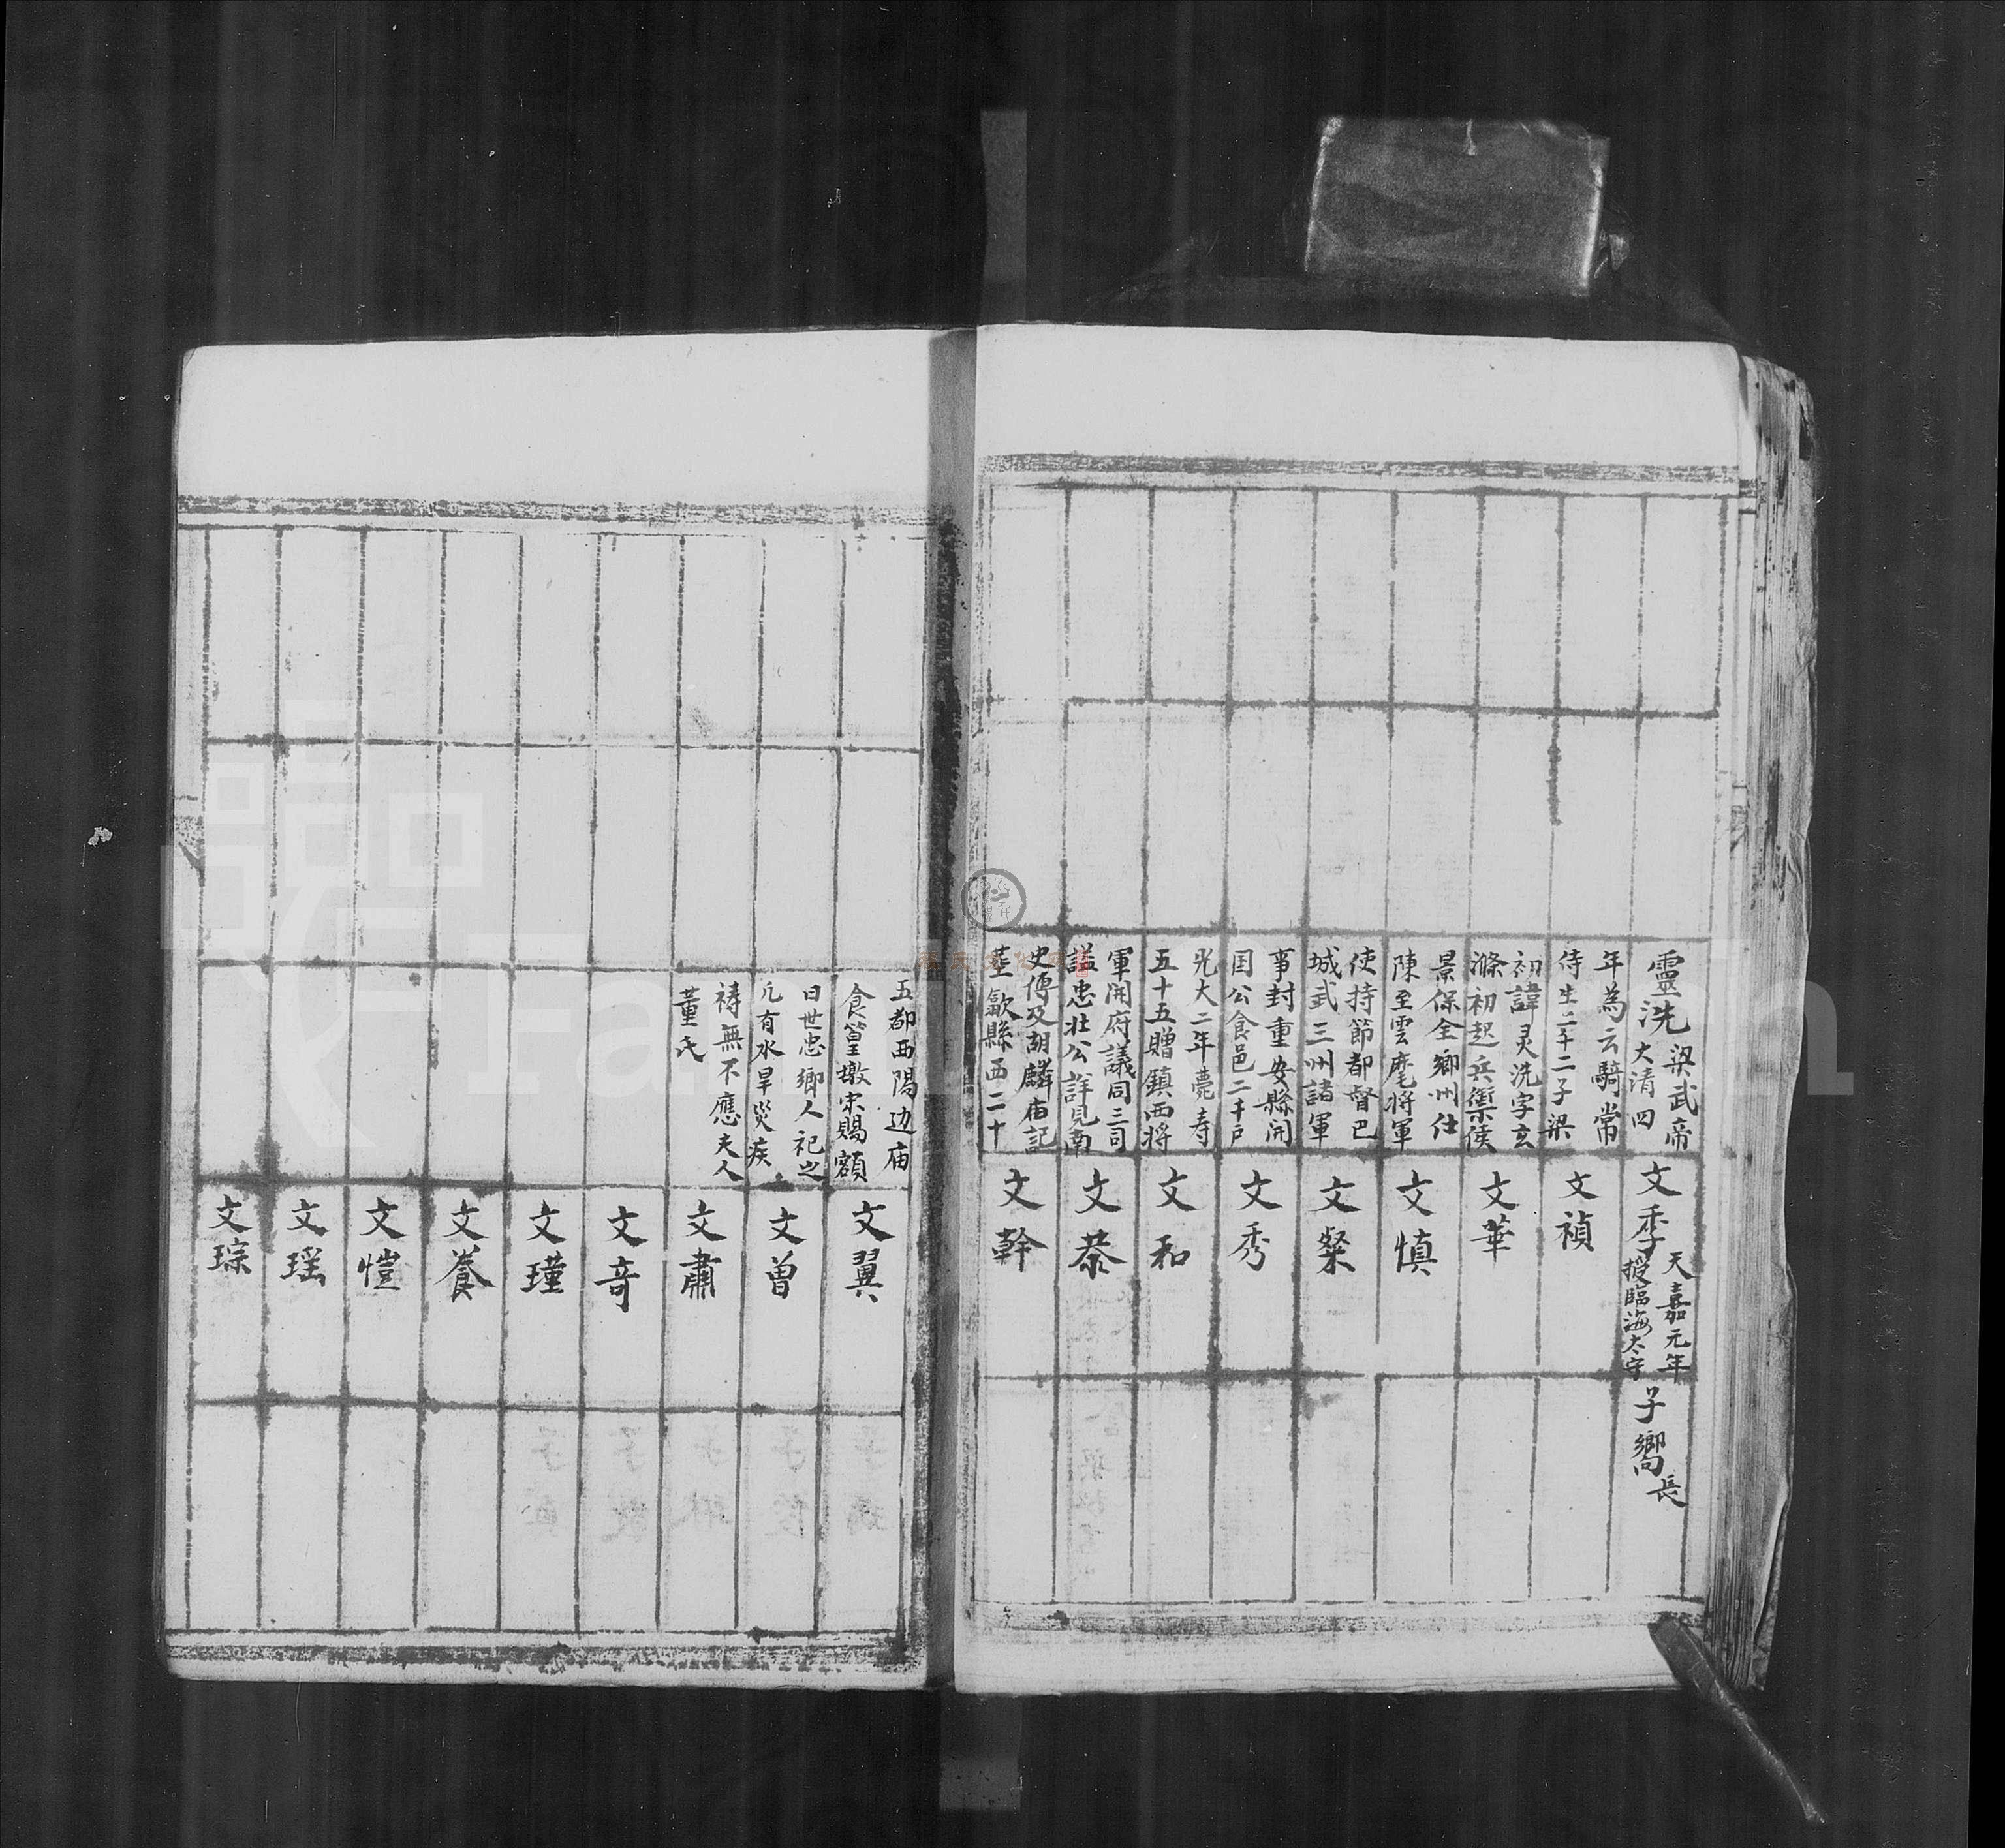 靈洗
梁武帝
大清四
年為云騎常
侍生二十二子梁
初諱灵洗字玄
滌初起兵禦侯
景保全鄉州仕
陳至雲麾将軍
使持節都督巴
城武三州諸軍
事封重安縣開
国公食邑二千戶
光大二年薨寿
五十五贈鎮西将
軍開府議同三司
謚忠壮公詳見南
史傳及胡麟庙記
塟歙縣西二十
文季
天嘉元年
授臨海太守
文禎
文華
文慎
文粲
文秀
文和
文恭
文幹
子嚮
長
五都西陽边庙
食篁墩宋賜額
曰世忠鄉人祀之
凢有水旱災疾
祷無不應夫人
董氏
文翼
文曾
文肅
文奇
文瑾
文養
文愷
文瑶
文琮